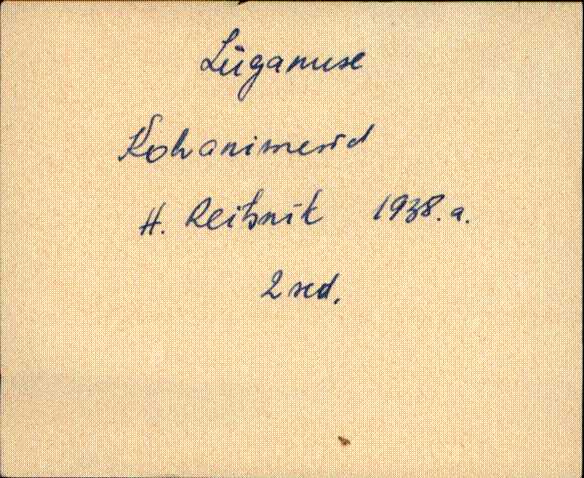 Lüganuse
Kohanimesid
H. Reitsnik 1938. a.
2 sed.